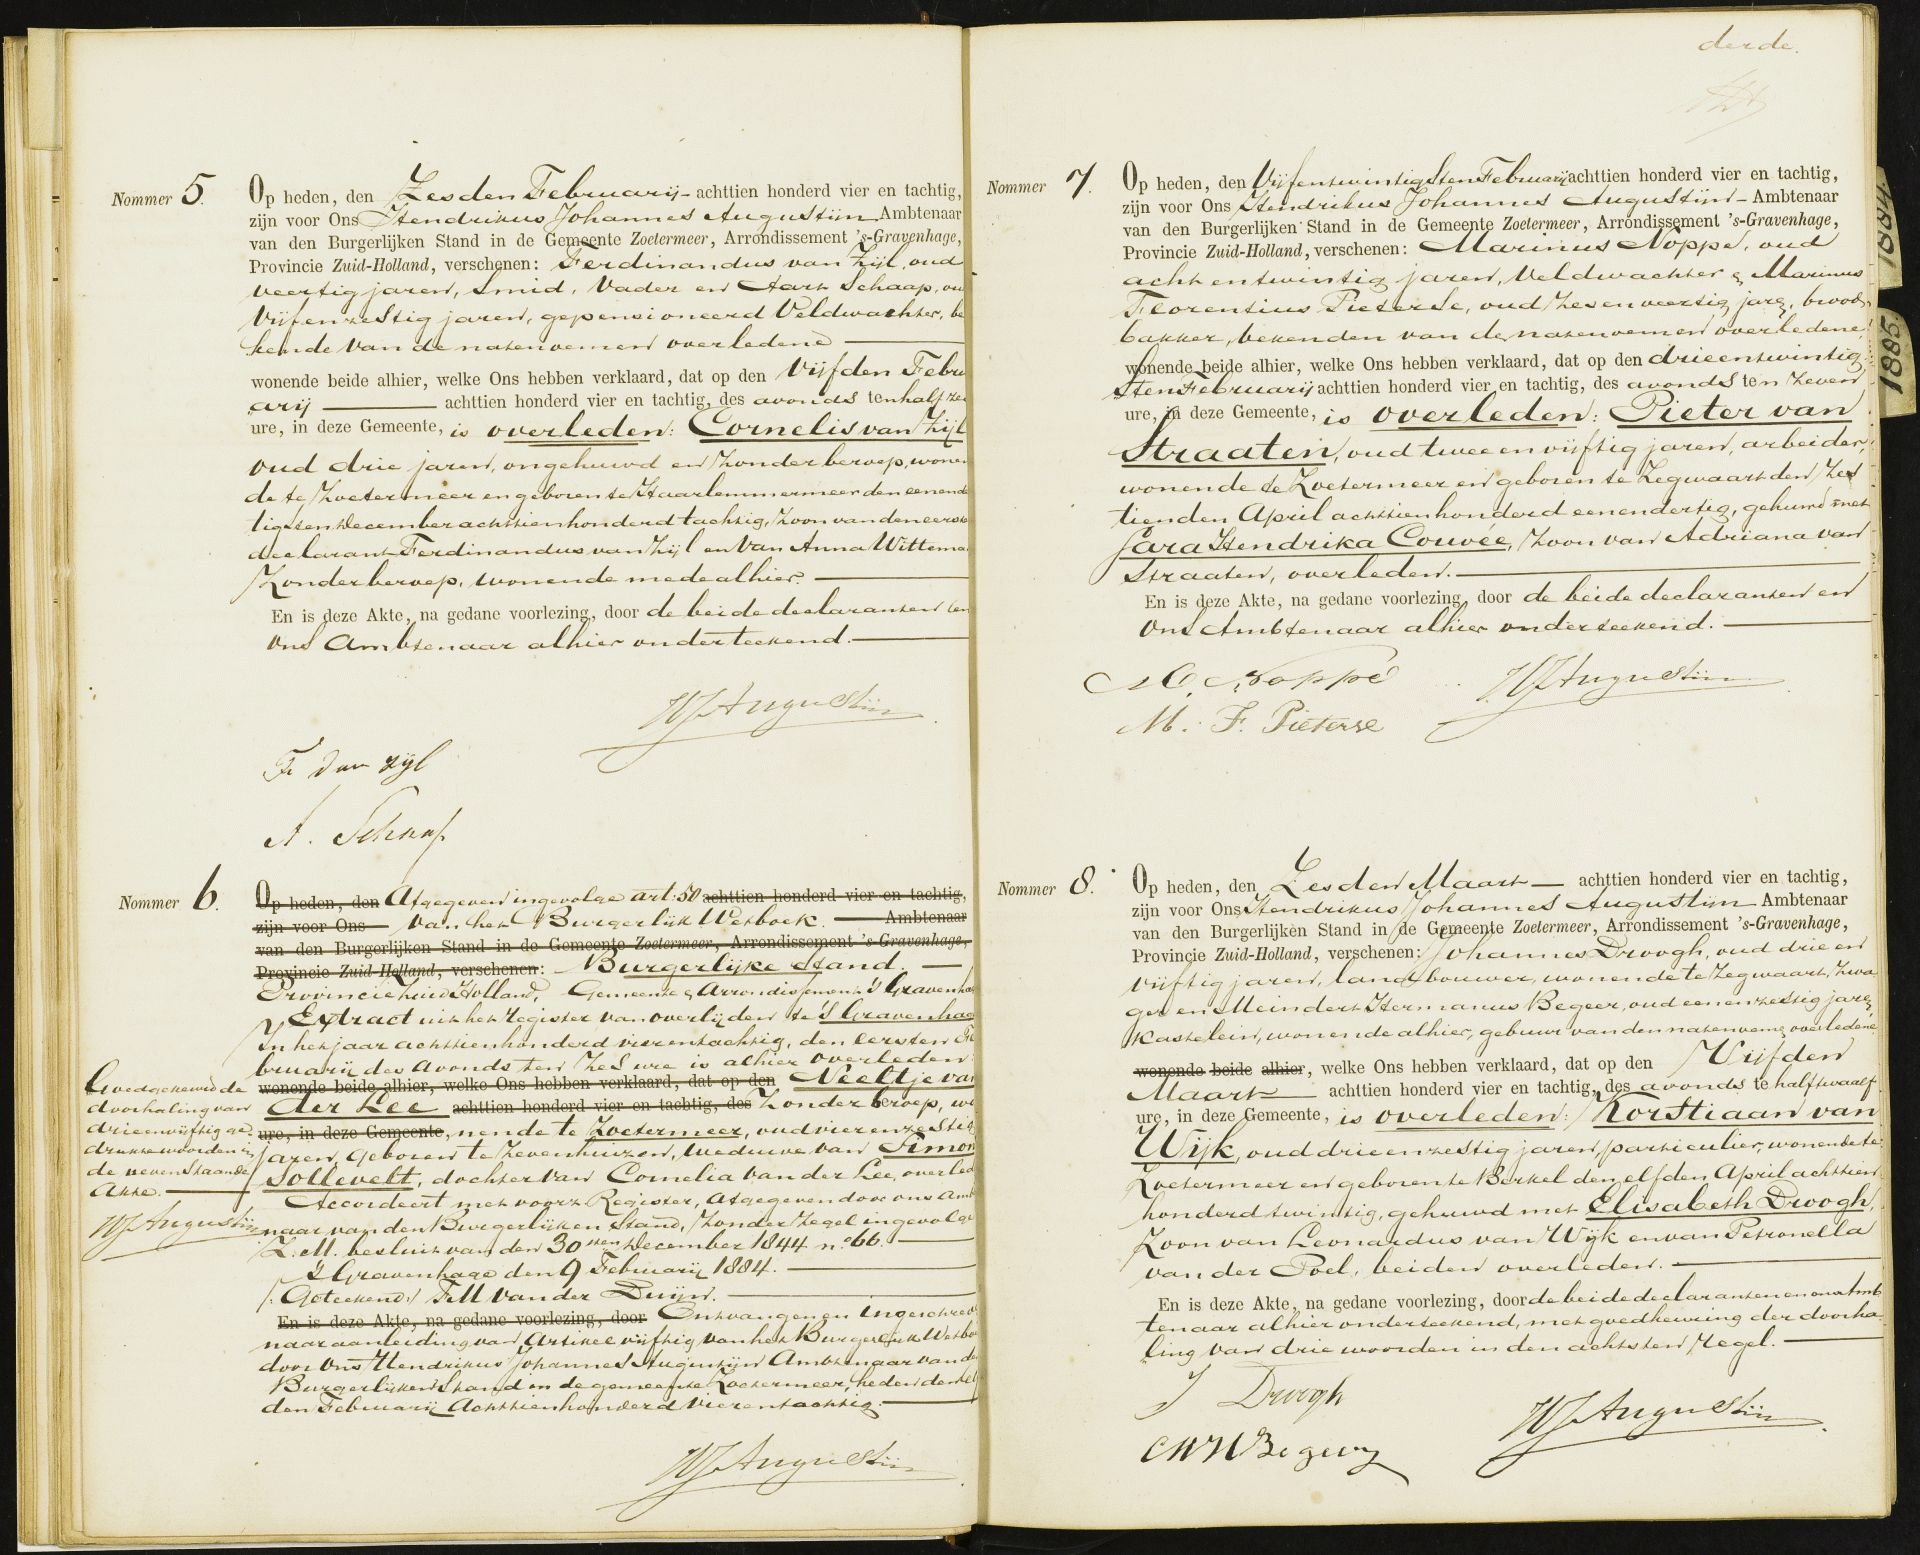 Nommer 5.
Op heden, den Zesden Februarij - achttien honderd vier en tachtig,
zijn voor Ons Hendrikus Johannes Augustijn Ambtenaar
van den Burgerlijken Stand in de Gemeente Zoetermeer, Arrondissement 's-Gravenhage,
Provincie Zuid-Holland, verschenen: Ferdinandus van Zijl, oud
veertig jaren, Smid, Vader en Aart Schaap, ou
Vijfenzestig jaren, gepensioneerd Veldwachter, be
kende van de natenoemen overledene
wonende beide alhier, welke Ons hebben verklaard, dat op den Vijfden Febru
arij achttien honderd vier en tachtig, des avonds ten half ze
ure, in deze Gemeente, is overleden: Cornelis van Zijl
oud drie jaren, ongehuwd en zonder beroep, wonen
de te Zoetermeer en geboren te Haarlemmermeer den eenende
tigsten December achttienhonderd tachtig, Zoon van den eerste
declarant Ferdinandus van Zijl en van Anna Wittema
Zonder beroep, wonende mede alhier.
En is deze Akte, na gedane voorlezing, door de beide declaranten en
Ons Ambtenaar alhier onderteekend.
HJAugustijn
F. van zijl
A. Schaap
Nommer 6.
Op heden, den Afgegeven ingevolge art: 50 achttien honderd vier en tachtig,
zijn voor Ons van het Burgerlijk Wetboek. Ambtenaar
van den Burgerlijken Stand in de Gemeente Zoetermeer, Arrondissement 's-Gravenhage,
Provincie Zuid-Holland, verschenen: Burgerlijke Stand.
Provincie Zuid Holland, Gemeente & Arrondissement 's Gravenha
Extract uit het register van overlijden te 's Gravenhag
In het jaar achttienhonderd vierentachtig, den eersten Fe
bruarij des avonds ten zes ure is alhier overleden
wonende beide alhier, welke Ons hebben verklaard, dat op den Neeltje van
der Lee achttien honderd vier en tachtig, des Zonder beroep, wo
ure, in deze Gemeente, nende te Zoetermeer, oud vierenzestig
jaren, geboren te Zevenhuizen, weduwe van Simon
Sollevelt, dochter van Cornelia van der Lee, overled
Accordeert met voorz. Register, Afgegeven door ons Amb
naar van den Burgerlijken Stand, zonder zegel ingevolge
Z.M. besluit van den 30sten December 1844 no. 66.
's Gravenhage den 9 Februarij 1884.
/: Geteekend:/ F M van der Duijn.
En is deze Akte, na gedane voorlezing, door Ontvangen en ingeschrev
naar aanleiding van Artikel vijftig van het Burgerlijk Wetbo
door Ons Hendrikus Johannes Augustijn Ambtenaar van den
Burgerlijken Stand in de gemeente Zoetermeer, heden den elf
den Februarij Achttienhonderd Vierentachtig.
HJAugustijn
Goedgekeurd de
doorhaling van
drieenvijftig ge-
drukte woorden in
de nevenstaande
Akte.
HJAugustijn
derde.
Nommer 7.
Op heden, den Vijfentwintigsten Februarij achttien honderd vier en tachtig,
zijn voor Ons Hendrikus Johannes Augustijn - Ambtenaar
van den Burgerlijken Stand in de Gemeente Zoetermeer, Arrondissement 's-Gravenhage,
Provincie Zuid-Holland, verschenen: Marinus Noppe, oud
acht en twintig jaren, Veldwachter & Marinus
Florentius Pieterse, oud zesenveertig jaren, brood
bakker, bekenden van de natenoemen overledene
wonende beide alhier, welke Ons hebben verklaard, dat op den drieentwintig
sten Februarij achttien honderd vier en tachtig, des avonds ten zeven
ure, in deze Gemeente, is overleden: Pieter van
Straaten, oud twee en vijftig jaren, arbeider,
wonende te Zoetermeer en geboren te Zegwaart den zes
tienden April achttienhonderd eenendertig, gehuwd met
Sara Hendrika Couvée, Zoon van Adriana van
Straaten, overleden.
En is deze Akte, na gedane voorlezing, door de beide declaranten en
Ons Ambtenaar alhier onderteekend.
M. Noppe HJAugustijn
M. F. Pieterse
Nommer 8.
Op heden, den Zesden Maart achttien honderd vier en tachtig,
zijn voor Ons Hendrikus Johannes Augustijn Ambtenaar
van den Burgerlijken Stand in de Gemeente Zoetermeer, Arrondissement 's-Gravenhage,
Provincie Zuid-Holland, verschenen: Johannes Droogh, oud drie en
vijftig jaren, landbouwer, wonende te Zegwaart, Zwa
ger en Meindert Hermanus Begeer, oud eenenzestig jaren
Kastelein, wonende alhier, gebuur van den natenoemen overledene
wonende beide alhier, welke Ons hebben verklaard, dat op den Vijfden
Maart achttien honderd vier en tachtig, des avonds te half twaalf
ure, in deze Gemeente, is overleden: Korstiaan van
Wijk, oud drieenzestig jaren, particulier, wonende te
Zoetermeer en geboren te Berkel den elfden April achttien
honderd twintig, gehuwd met Elisabeth Droogh,
Zoon van Leonardus van Wijk en van Petronella
van der Poel, beiden overleden.
En is deze Akte, na gedane voorlezing, door de beide declaranten en ons Amb
tenaar alhier onderteekend, met goedkeuring der doorha
ling van drie woorden in den achtsten regel.
J Droogh
HJAugustijn
MHBegeer
1884.
1885.